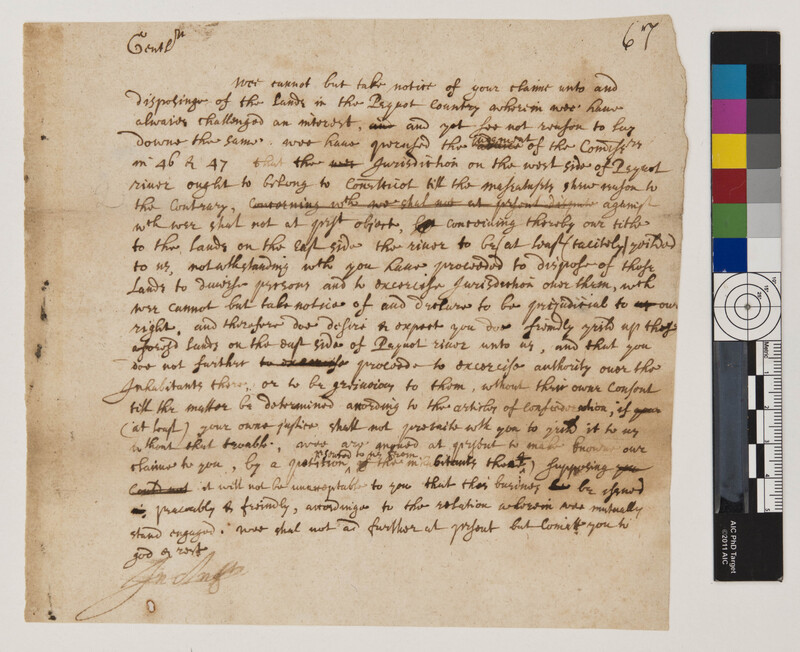 Gentlm 67
Wee cannot but take notice of your claime unto and
disposinge of the Lands in the Pequot Country wherein wee have
alwaies challenged an interest, and and yet see not reason to lay
downe the same. wee have perused the Judgment of the Comissrs
in 46 & 47 that the Jurisdiction on the west side of Pequot
river ought to belong to Conecticot till the massatusets shew reason to
the Contrary, Concerning wch wee shal not at present dispute against
wch wee shal not at prsent object, but conceiving thereby our title
to the Lands on the East side the river to be (at least tacitely) yeilded
to us, notwthstanding wch you have proceeded to dispose of those
Lands to diverse persons and to excercise Jurisdiction over them, wch
wee cannot but take notice of and declare to be prejudicial to our
right, and therefore doe desire & expect you doe friendly yeild up those
aforesd Lands on the east side of Pequot river unto us, and that you
doe not further to excercise proceede to excercise authority over the
Inhabitants there, or to be grievious to them, without their owne Consent
till the matter be determined according to the articles of confideration, if your
(at least) your owne justice shall not prevaile wth you to yeild it to us
without that trouble, wee are moved at present to make knowne our
claime to you, by a petition prsented to us from the inhabitants there, Supposing you
Could not it will not be unacceptable to you that this busines be issued
peaceably & friendly, accordinge to the relation wherein wee mutually
stand engaged. wee shal not ad further at prsent but Comitt you to
god & rest
AIC PhD Target
©2011 AIC